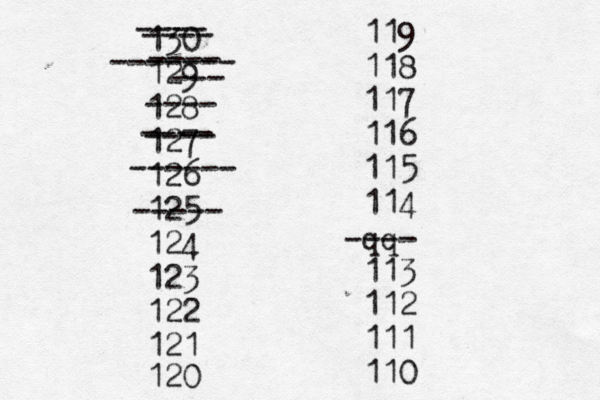 130
129
128
127
126
125
124
123
122
121
120
119
118
117
116
115
114
qq
113
112
111
110